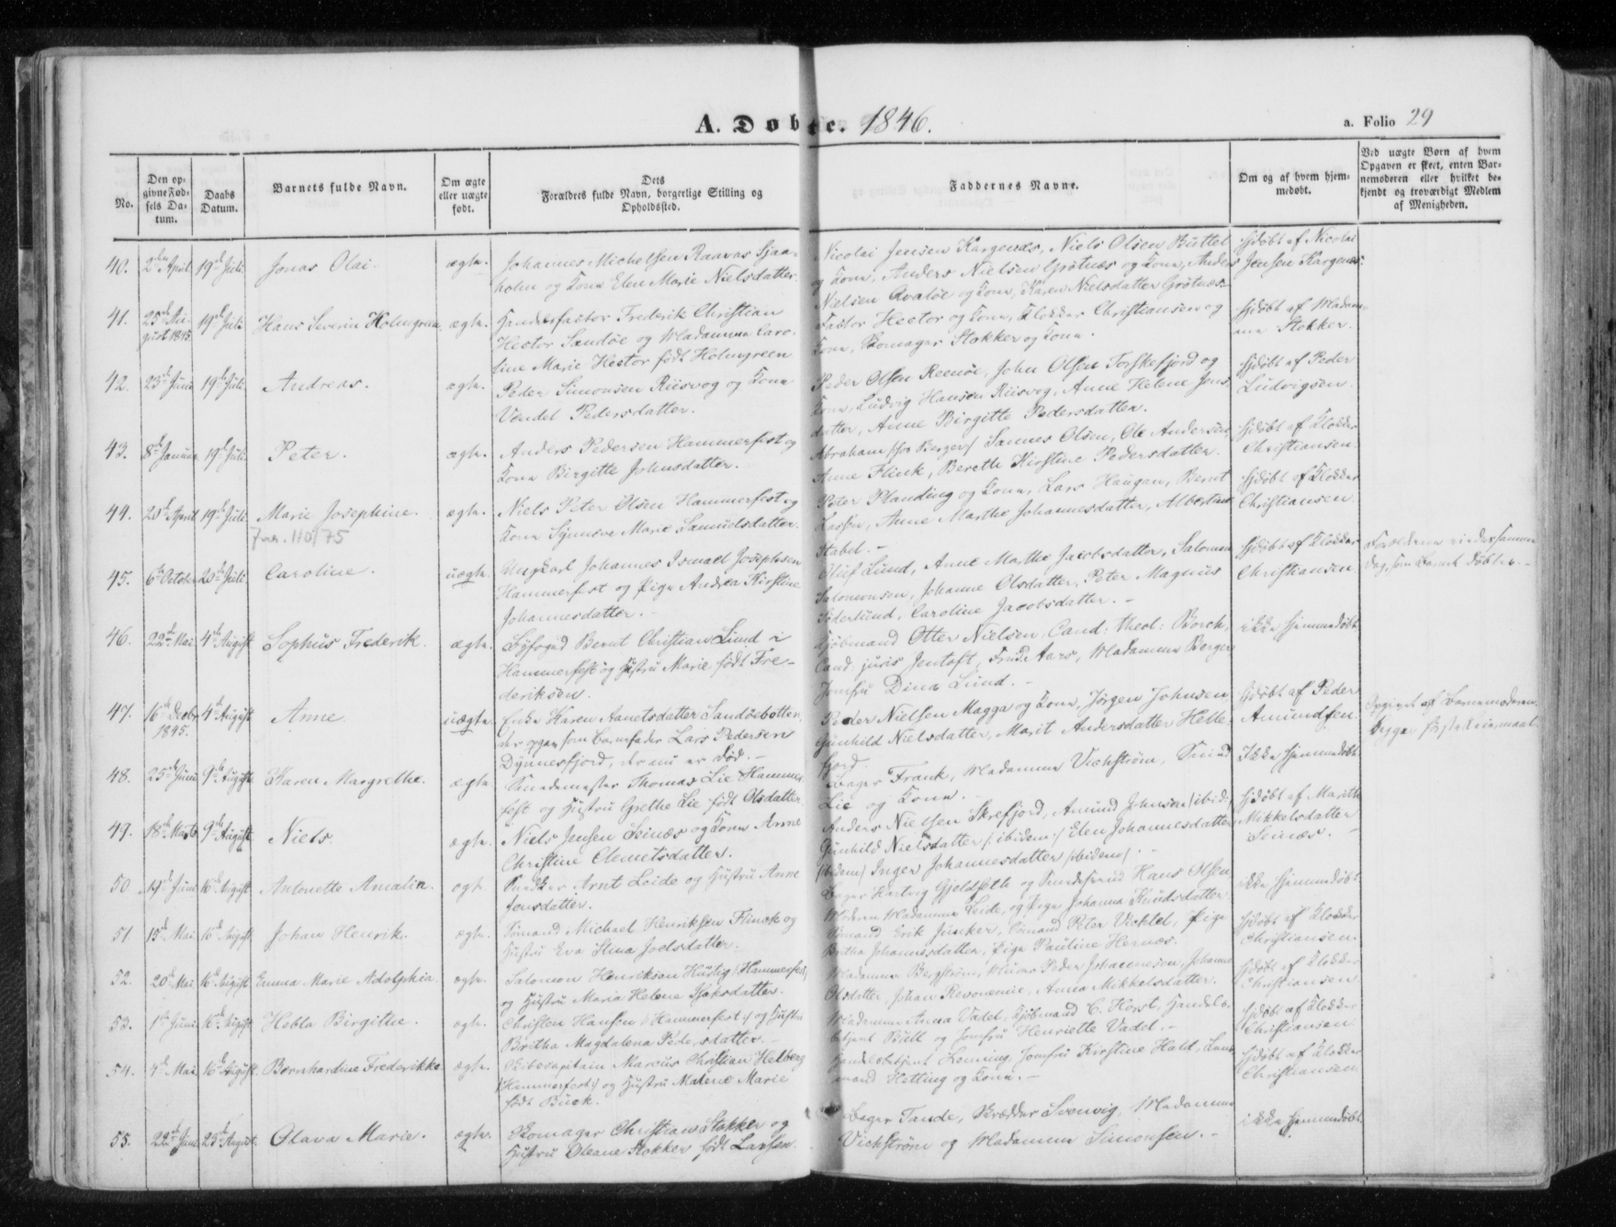 A. Døbte. 1846.
a. Folio 29
No.
Den opgivne Fødsels Datum.
Daabs Datum.
Barnets fulde Navn.
Om ægte eller uægte født.
Dets Forældres fulde Navn, borgerlige Stilling og Opholdssted.
Faddernes Navne.
Om og af hvem hjemmedøbt.
Ved uægte Børn af hvem Opgaven er skeet, enten Barnemoderen eller hvilket bekjendt og troværdigt Medlem af Menigheden.
40. 2den April 19de Juli Jonas Olai. ægte.
Johannes Michelsen Raavas Sjaa-
holm og Kone Elen Marie Nielsdatter
Nicolai Jensen Kargenes, Niels Olsen Buttel
og Kone, Anders Nielsen Grøtnæs og Kone, Anders
Nielsen Qvaløe og Kone, Karen Nielsdatter Grøtnæs.
Hjdøbt af Nicolai
Jensen Kargenes.
41. 25de August 1845 19de Juli Hans Severin Holmgreen ægte.
Handelsfactor Frederik Christian
Hector Sandøe og Madamme Caro-
line Marie Hector født Holmgreen
Factor Hector og Kone, Klokker Christiansen og
Kone, Skomager Stokker og Kone.
Hjdøbt af Madam-
me Stokker.
42. 23de Juni 19de Juli Andreas. ægte.
Peder Simonsen Riisvog og Kone
Vendel Pedersdatter.
Peder Olsen Reenøe, John Olsen Torskefjord og
Kone, Ludvig Hansen Riisvog, Anne Helene Jons-
datter, Anne Birgitte Pedersdatter.
Hjdøbt af Peder
Ludvigsen.
43. 8de Januar 19de Juli Peter. ægte.
Anders Pedersen Hammerfest og
Kone Birgitte Johnsdatter.
Abraham (fra Bergen) Sannes Olsen, Ole Andersen,
Anne Flink, Berethe Kirstine Pedersdatter.
Hjdøbt af Klokker
Christiansen.
44. 20de April 19de Juli Marie Josephine. ægte.
fnr. 110/75
Niels Peter Olsen Hammerfest og
Kone Synnøve Marie Samuelsdatter.
Peter Planding og Kone, Lars Haugan, Bernt
Larsen, Anne Marthe Johannesdatter, Albertine
Stabel.-
Hjdøbt af Klokker
Christiansen.
45. 6te October 20de Juli Caroline. uægte.
Ungkarl Johannes Ismael Josephsen
Hammerfest og Pige Andrea Kirstine
Johannesdatter.-
Oluf Lund, Anne Marthe Jacobsdatter, Salomon
Salomonsen, Johanne Olsdatter, Peter Magnus
Söderlund, Caroline Jacobsdatter.-
Hjdøbt af Klokker
Christiansen.
Forældrene viedes samme
Dag, som Barnet døbtes.-
46. 22de Mai 4de August Sophus Frederik. ægte.
Byfoged Bernt Christian Lund i
Hammerfest og Hustru Marie født Fre-
deriksen.
Kjøbmand Otter Nielsen, Cand: theol: Borch,
Cand: juris Jentoft, Frue Aars, Madamme Berger
Jomfru Dina Lund.-
ikke hjemmedøbt
47. 16de Decbr 1845. 4de August Anne. uægte.
Enke Karen Aanetsdatter Sandøebotten,
der opgav som Barnefader Lars Pedersen
Dyfjord, der nu er død.-
Peder Nielsen Magga og Kone, Jørgen Johnsen
Gunhild Nielsdatter, Marit Andersdatter Helle-
fjord
Hjdøbt af Peder
Amundsen.
Opgivet af Barnemoderen.
48. 25de Juni 9de August Karen Margrethe. ægte
Smedemester Thomas Lie Hammer-
fest og Hustru Grethe Lie født Olsdatter
Bager Frank, Madamme Vichstrøm, Smed
Lie og Kone.
Ikke hjemmedøbt
49. 18de Marts 9de August Niels. ægte.
Niels Jensen Seinæs og Kone Anne
Christine Clemetsdatter.
Anders Nielsen Skrefjord, Amund Johnsen (ibidem)
Gunhild Nielsdatter (ibidem) Elen Johannesdatter
(ibidem) Inger Johannesdatter (ibidem).
Hjdøbt af Marith
Mikkelsdatter
Seinæs.-
50. 19de Juni 16de August Antonette Amalia. ægte.
Arnt Leide og Hustru Anne
Jonsdatter.
Bager Hartvig Gjeldseth og Hans Olsen
Madamme Leide, og Pige Johanna Knudsdatter
ikke hjemmedøbt
51 15de Mai 16de August Johan Henrik. ægte.
Sømand Michael Henriksen Flinck og
Hustru Eva Stina Joelsdatter.
Sømand Erik Junker, Sømand Peter Vicklel, Pige
Bertha Johannesdatter, Pige Pauline Hernæs.
Hjdøbt af Klokker
Christiansen.
52. 20de Mai 16de August Emma Marie Adolphia. ægte.
Salomon Henrikson Hurtig (Hammerfest)
og Hustru Maria Helena Isaksdatter.
Madamme Bergstrøm, Peder Johannesen, Johanne
Olsdatter, Johan, Anna Mikkelsdatter.
Hjdøbt af Klokker
Christiansen
53. 1ste Juni 16de August Hebla Birgithe. ægte.
Christen Hansen (Hammerfest) og Hustru
Beretha Magdalena Pedersdatter.
Madamme Anna Vadel, Kjøbmand C. Horst, Handels-
betjent Bull og Jomfru Henriette Vadel.-
Hjdøbt af Klokker
Christiansen
54. 4de Mai 16de August Bernhardine Frederikke ægte.
Skibscapitain Marcus Christian Helberg
(Hammerfest) og Hustru Malene Marie
født Buck.
Handelsbetjent Lorning, Jomfru Kirstine Hald, Løns-
mand Hetting og Kone.-
Hjdøbt af Klokker
Christiansen
55. 22de Juni 25de August. Olava Marie. ægte.
Skomager Christian Stokker og
Hustru Oleane Stokker født Larsen.
Bager Tande, Skrædder Svensvig, Madamme
Vichstrøm og Madamme Simonsen.-
ikke hjemmedøbt.